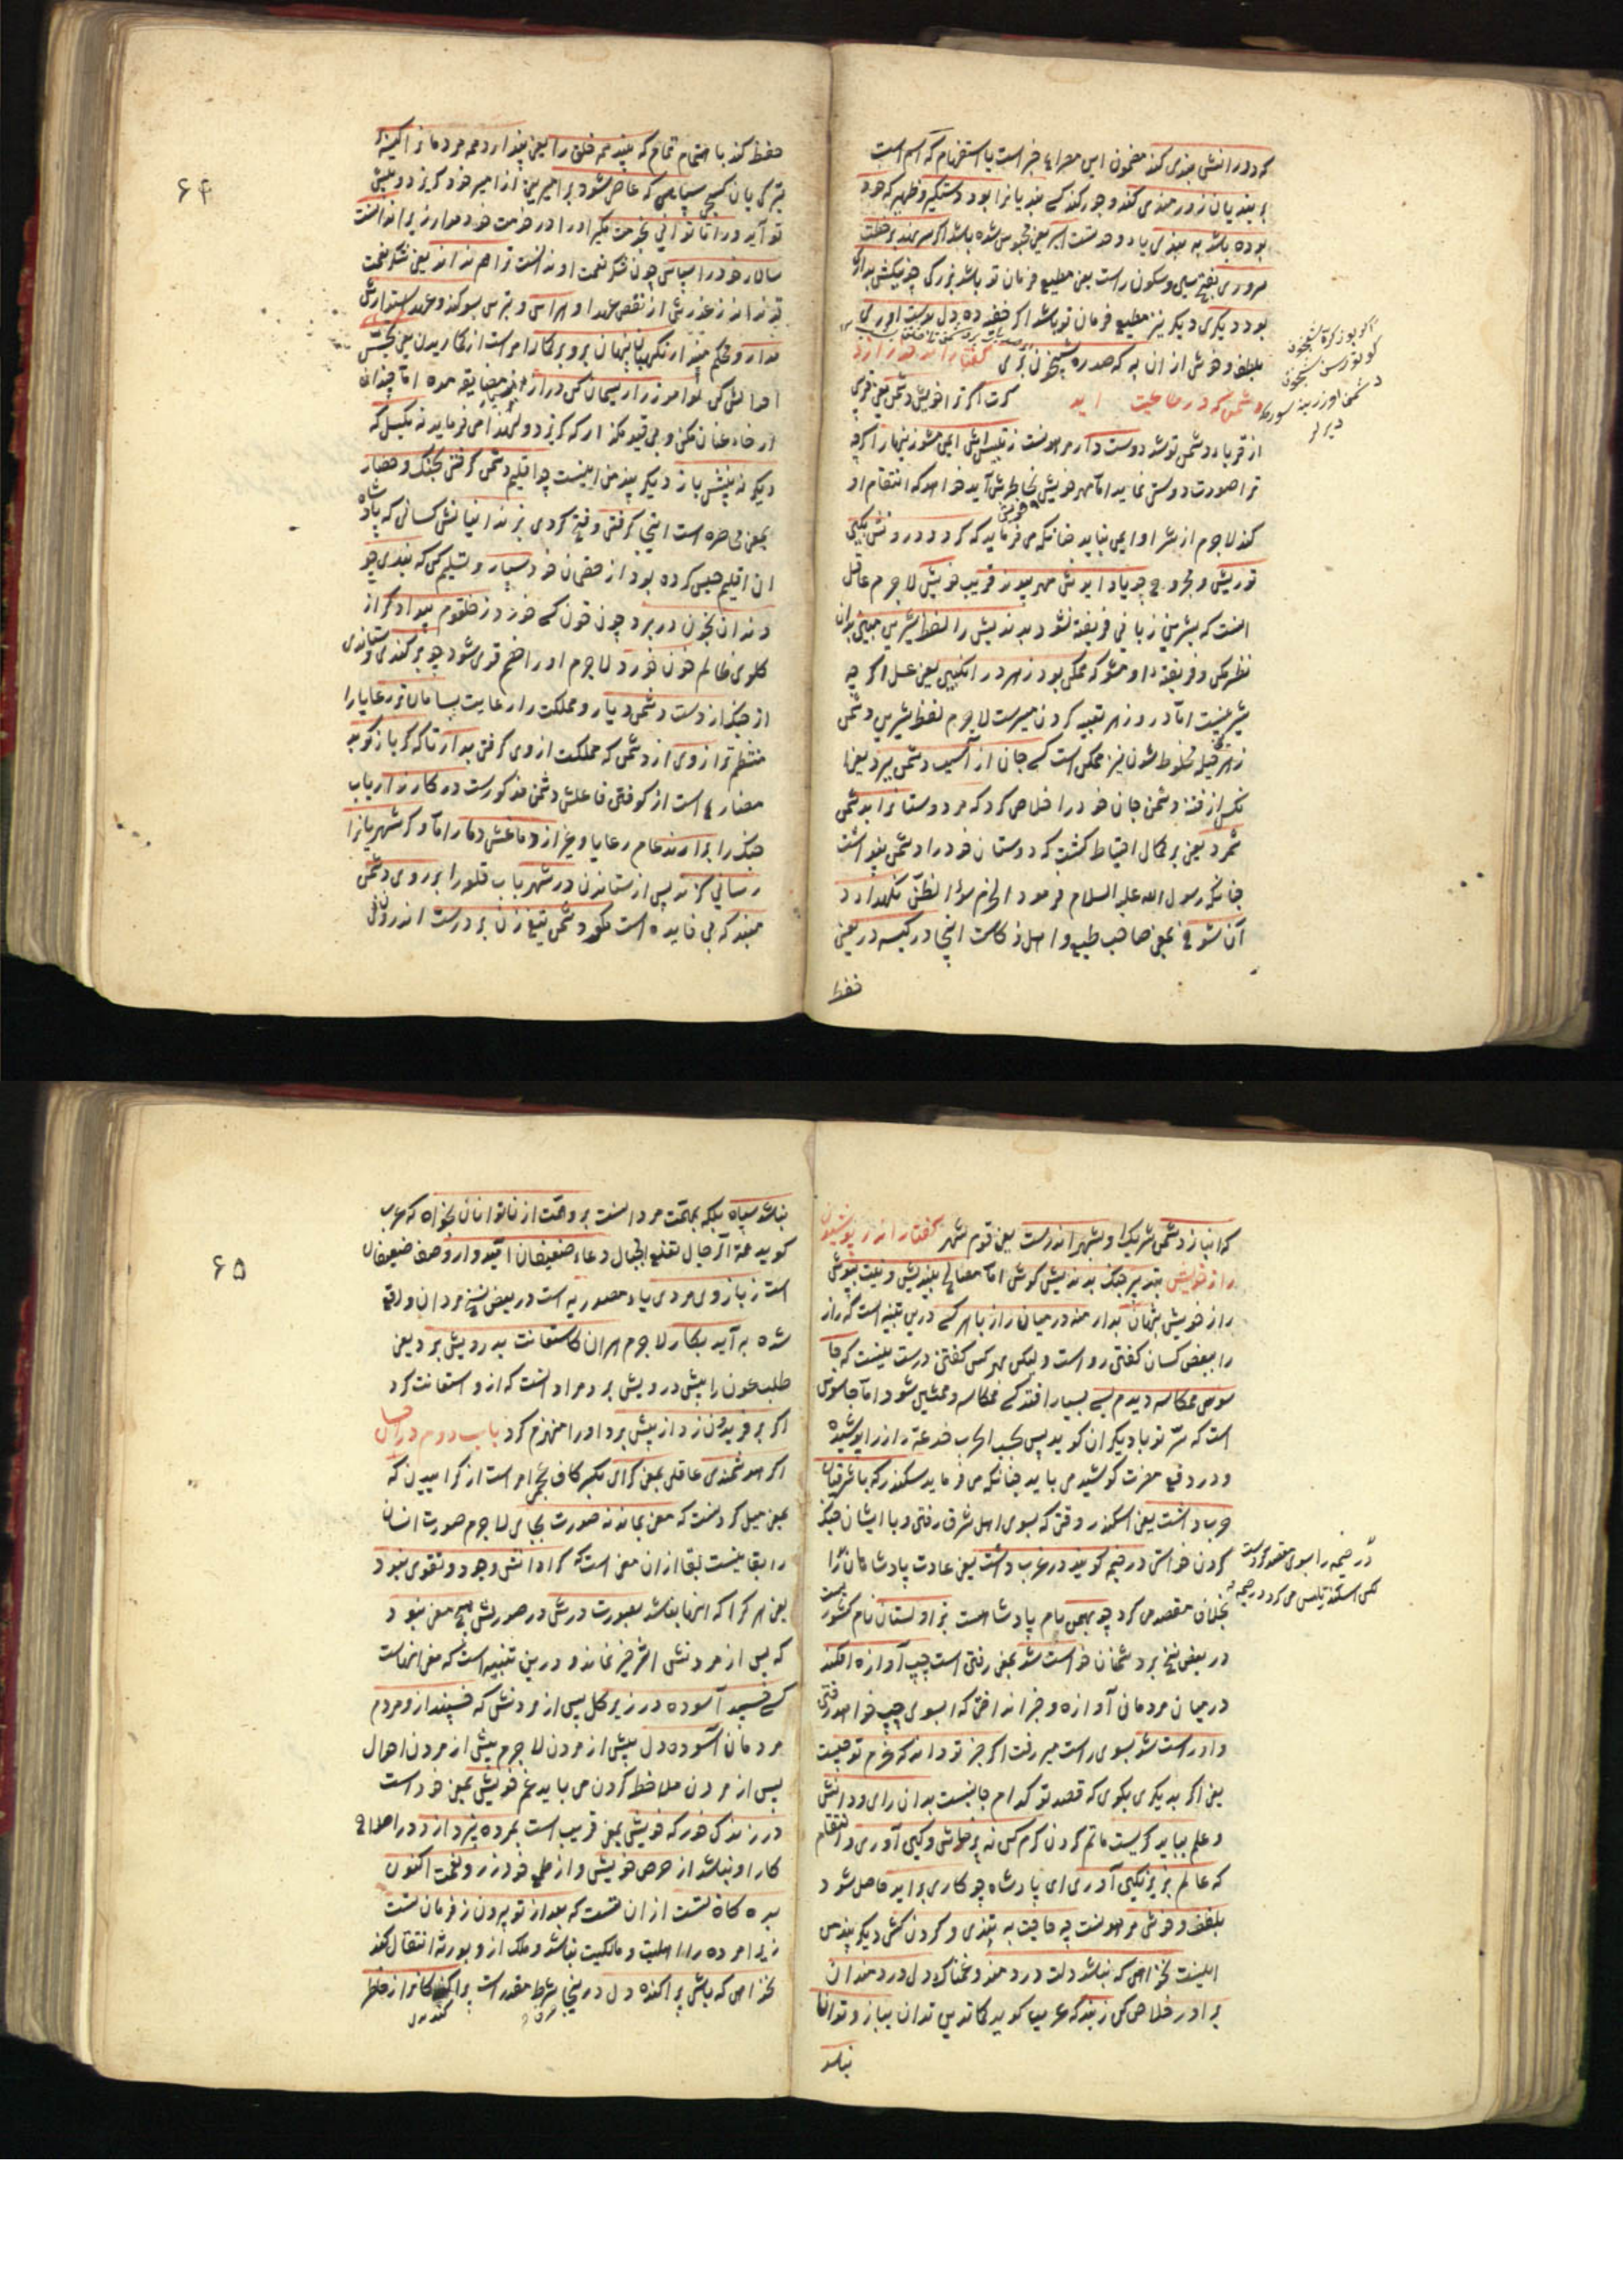 که دورانش بندی کند مضمون این مصراع خبر است یا استفهام که اسم است
بر بندیان زورمندی کند و جور کند کسی بندیانرا بود دستگیر و ظهیر که خود
بوده باشد به بندی یاء وحدتست اسیر یعنی محبوس شده باشد اگر سر نهد بر خطت
سروری بفتح سین و سکون راست یعنی مطیع فرمان تو باشد بزرگی چو نیکش بداری
بود دیگری دیگر نیز مطیع فرمان تو باشد اگر خفیه ده دل بدست آوری
بلطف و خوش از ان به که صد ره شبیخون بری گفتار اندر حذر از
دشمن که در طاعت آید کرت اگر ترا خویش دشمن یعنی قومی
از قرباء دشمن تو شد دوست دار مرهونست ز تلبیسش ایمن مشو زینهار اگرچه
ترا صورت دوستی نماید اما مهر خویش بخاطرش آید خواهد که انتقام او
کند لاجرم از شر او ایمن نباید چنانکه می فرماید که گردد درونش بکین
تو ریش و مجروح چو یاد آیدش مهر پیوند قریب خویش لاجرم عاقل
انست که بشیرین زبانی فریفته نشود بد اندیش را لفظ شیرین مبین بدان
نظر مکن و فریفته او مشو که ممکن بود زهر در انگبین یعنی عسل اگر چه
شیرینست اما در و زهر تعبیه کردن میسرست لاجرم لفظ شیرین دشمن
زهر حیله مخلوط شدن نیز ممکن است کسی جان از آسیب دشمن ببرد یعنی
نکس از فتنه دشمن جان خود را خلاص کرد که مر دوستانرا بدشمن
شمرد یعنی بر کمال احتیاط گشت که دوستان خود را دشمن پنداشت
چنانکه رسول الله علیه السلام فرمود الحزم سوء الظن نگهدارد
آن شوخ یعنی صاحب طبع و اهل ذکاست اینجا در کیسه در یعنی
حفظ
۶۴
حفظ کند باهتمام تمام که بیند همه خلق را یعنی پندارد همه مردمانرا کیسه بر
سپاهی که عاصی شود بر امیر یعنی از امیر خود گریزد و پیش
تو آید ورا تا توانی بخدمت مگیر او را در خدمت خود مدار زیرا ندانست
سالار خود را سپاس چون شکر نعمت او ندانست ترا هم نداند یعنی شکر نعمت
تو نداند ز غدرش از نقض عهد او هراس و بترس بسوگند و عهد استوارش
مدار و محکم مپندار نگهبان پنهان برو بر گمار امر است از گماریدن یعنی تجسس
احوالش کن نوآموز را ریسمان کن دراز
دیگر نه بینیش باز دیگر پند من اینست چو اقلیم دشمن گرفتی بجنگ و حصار
بمعنی محاصره است اینجا گرفتی و فتح کردی بزندانیانش کسانی که پادشاه
آن اقلیم حبس کرده بود از حصن آن خود بسپار و تسلیم کن که بندی چو
دندان بخون در برد چون خون کسی خورد ز حلقوم بیدادگر از
گلوی ظالم خون خورد لاجرم او را خصم قوی شود چو برکندی و ستاندی
از جنگ از دست دشمن دیار و مملکت را رعایت بسامان تر رعایا را
منتظم ترا ز وی از دشمن که مملکت از وی گرفتی بدار تا که گر باز کوبد
مضارع است از کوفتن فاعلش دشمن مذکورست در کارزار باب
جنگ را برآرند عام رعایا و غیر از دماغش دمار اما و گر شهریانرا
رسانی گزند پس از ستاندن در شهر باب قلعه را بر روی دشمن
مبند که بی فایده است مگو دشمن تیغ زن بر درست اندرونی
که انباز دشمن شریک او بشهر اندرست یعنی قوم شهر گفتار اندر پوشیدن
راز خویش بتدبیر جنگ بداندیش کوش اما مصالح بیندیش و نیت بپوش
راز خویش پنهان بدار منه در میان راز با هر کسی درین تنبیه است که راز
را ببعض کسان گفتن رواست ولیکن بهر کس گفتن درست نیست که جا
سوس همکاسه دیدم بسی بسیار افتد کسی همکاسه و همنشین شود اما جاسوس
است که سر تو با دیگران گوید پس بحسب الحرب خدعة راز را پوشیده
و در دفع مضرت کوشیده می باید چنانکه می فرماید سکندر که با شرقیان
حرب داشت یعنی اسکندر وقتی که بسوی اهل شرق رفتی و با ایشان جنگ
کردن خواستی در خیمه گویند در غرب داشت یعنی عادت پادشاهان را
بخلاف مقصد می کرد چو بهمن نام پادشاهست بزاولستان نام کشوریست
در بعض نسخ بر دشمنان خواست شد یعنی رفتن است چپ آوازه افکند
در میان مردمان آوازه و خبر انداخت که بسوی چپ خواهد رفتن
و از راست شد بسوی راست میرفت اگر جز تو داند که عزم تو چیست
یعنی اگر بدیگری بگوی که قصد تو کدام جانبست بدان رای و دانش
و علم بباید گریست ماتم کردن کرم کن نه پرخاش و کین آوری و انتقام
که عالم بزیر نگین آوری ای پادشاه چو کاری برآید حاصل شود
بلطف و خوش مرهونست چه حاجت به تندی و گردن کشی دیگر پند من
اینست نخواهی که باشد دلت دردمند و غمناک دل دردمندان
برآور خلاص کن ز بند که عرب گوید کما تدین تدان ببازو توانا
نباشد
۶۵
نباشد سپاه بلکه بهمت مردانست برو همت از ناتوانان بخواه که عرب
گوید همة الرجال تقلع الجبال دعاء ضعیفان امیدوار وصف ضعیفان
است ز بازوی مردی یاء مصدریه است در بعض نسخ مردان واقع
شده به آید بکار لاجرم هر آن کاستعانت بدرویش برد یعنی
طلب عون را پیش درویش برد مراد انست که از و استعانت کرد
اگر بر فریدون زد از پیش برد او را منهزم کرد باب دوم در احسان
اگر هوشمندی عاقلی بمعنی گرای بکسر کاف عجمی امر است از گراییدن که
بمعنی میل کردنست که معنی بماند نه صورت بجای لاجرم صورت انسان
را بقا نیست بقا از ان معنی است کرا دانش وجود و تقوی نبود
یعنی هر کرا که اینها نباشد بصورت درش در صورتش هیچ معنی نبود
که پس از مردنش اثر خیر نماند و درین تنبیه است که معنی اینهاست
کسی خسپد آسوده در زیر گل پس از مردنش که خسپند از و مردم
مردمان آسوده دل پیش از مردن لاجرم پیش از مردن احوال
پس از مردن ملاحظه کردن می باید غم خویش بمعنی خود است
در زندگی خور که خویش بمعنی قریب است بمرده نپردازد در اصلاح
کار او نباشد از حرص خویش و از طمع خود زر و نعمت اکنون
بده کان تست از ان تست که بعد از تو بیرون ز فرمان تست
زیرا مرده را اهلیت و مالکیت نباشد و ملک از و بورثه انتقال کند
نخواهی که باشی پراکنده دل درینجا شرط مقدر است پراکندگانرا ز خاطر